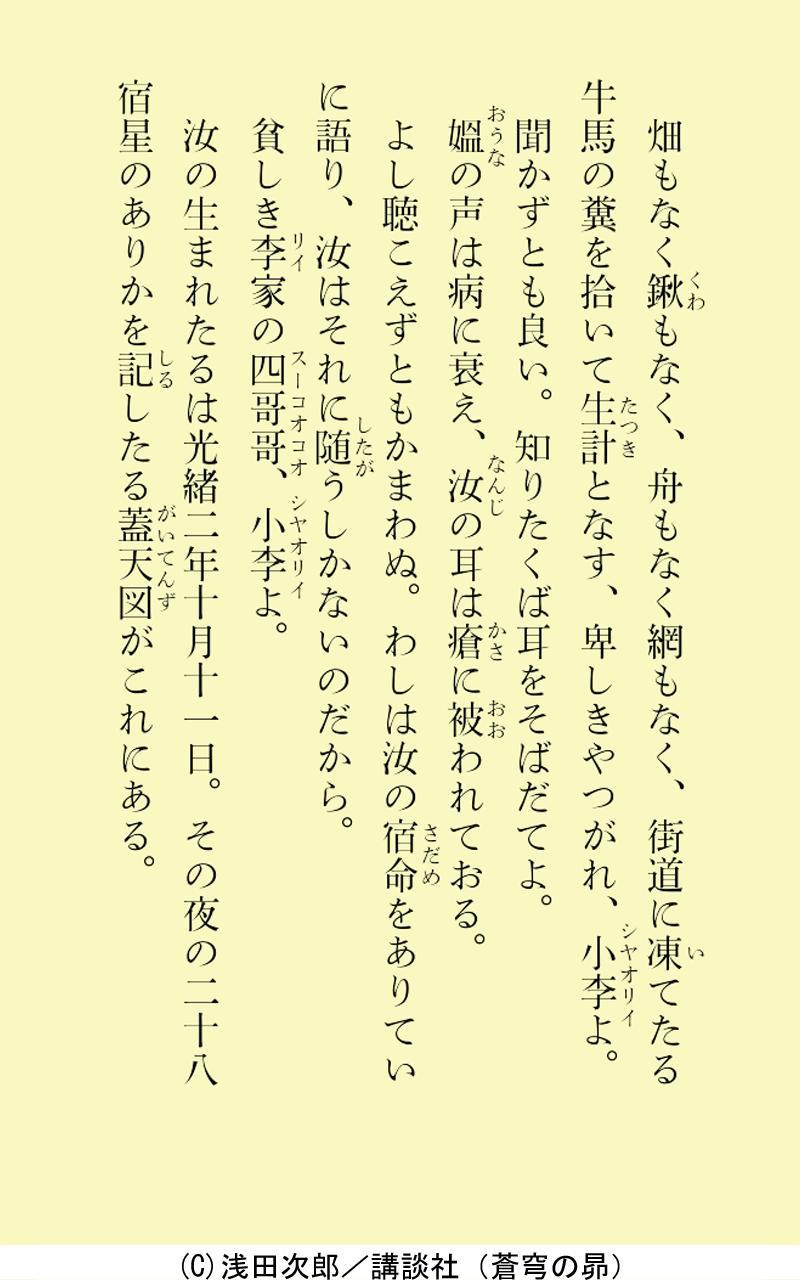 畑もなく鍬もなく、舟もなく網もなく、街道に凍てたる
牛馬の糞を拾いて生計となす、卑しきやつがれ、小李よ。
聞かずとも良い。知りたくば耳をそばだてよ。
媼の声は病に衰え、汝の耳は瘡に被われておる。
よし聴こえずともかまわぬ。わしは汝の宿命をありてい
に語り、汝はそれに随うしかないのだから。
貧しき李家の四哥哥、小李よ。
汝の生まれたるは光緒二年十月十一日。その夜の二十八
宿星のありかを記したる蓋天図がこれにある。
(C)浅田次郎／講談社（蒼穹の昴）